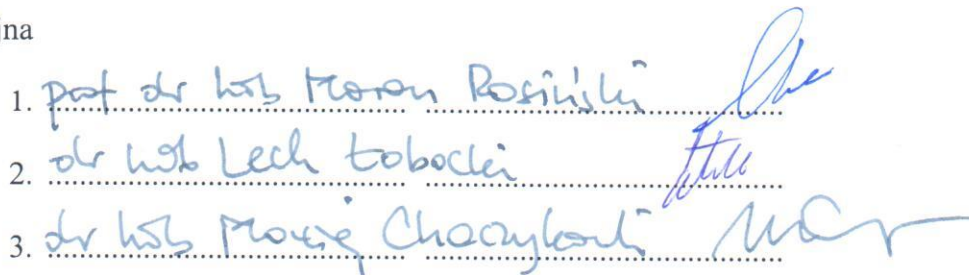 jna
1. prof dr hab Marian Rosiński
2. dr hab Lech Łobocki
3. dr hab Maciej Chaczykowski